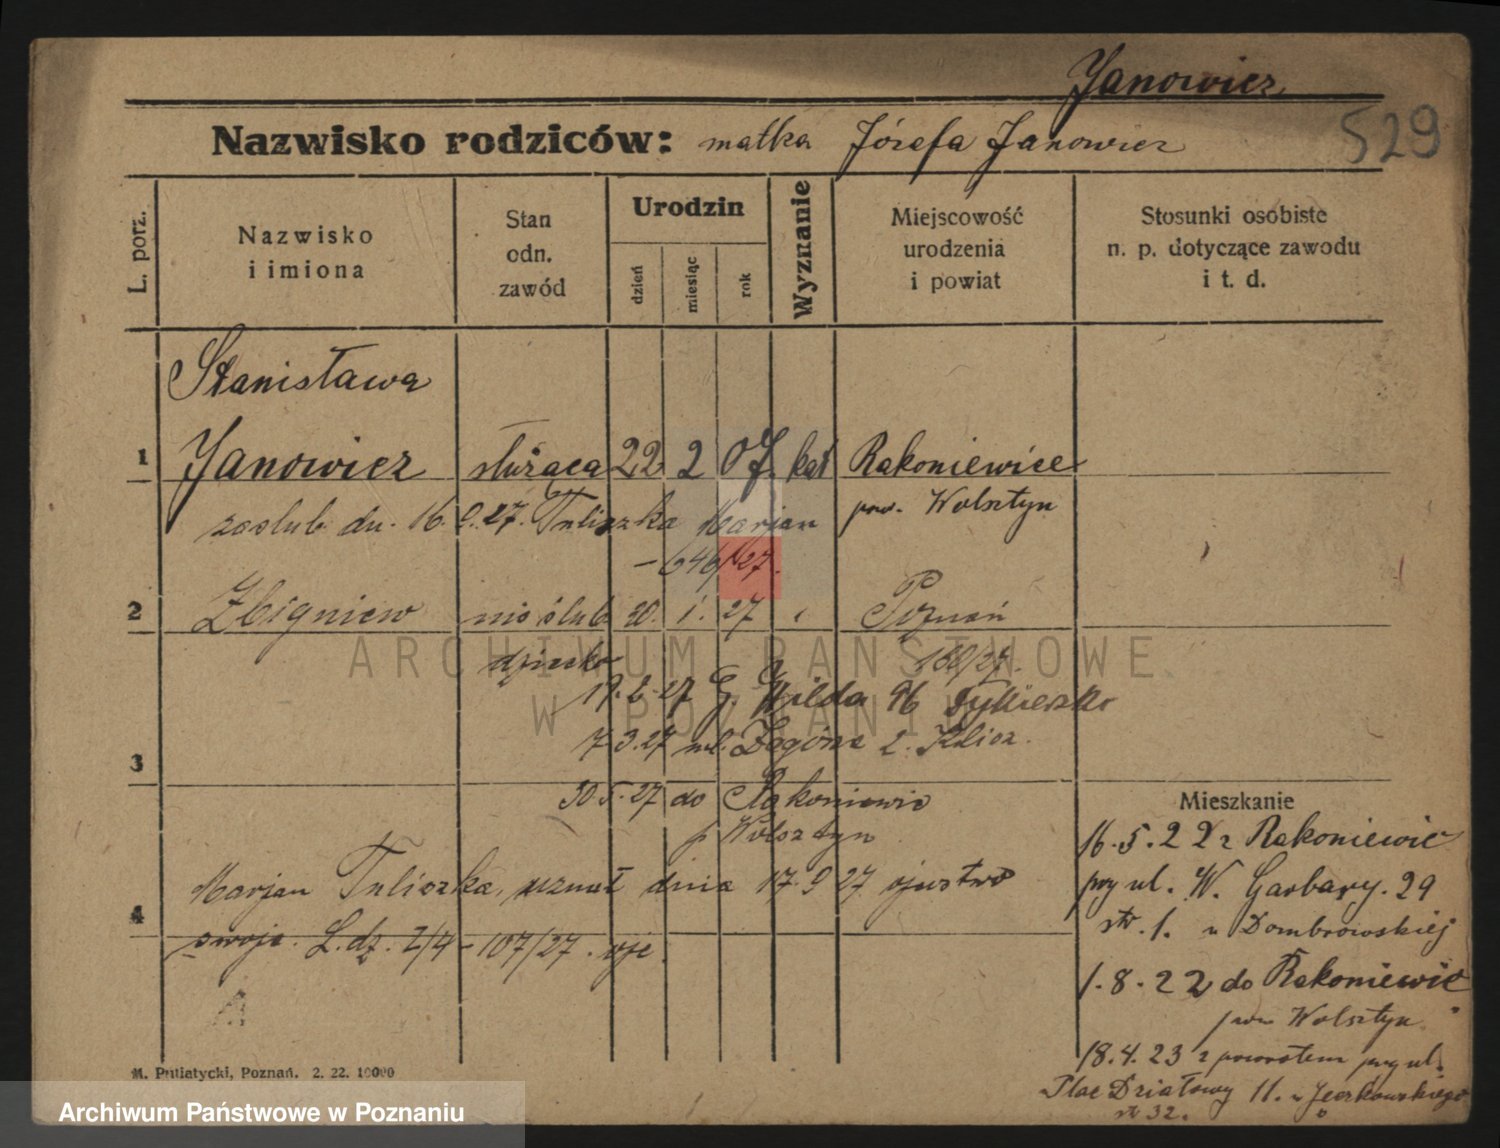 Janowicz
529
Nazwisko rodziców: matka Józefa Janowicz
L. porz.
Nazwisko i imiona
Stan odn. zawód
Urodzin
dzień
miesiąc
rok
Wyznanie
Miejscowość urodzenia i powiat
Stosunki osobiste n. p. dotyczące zawodu i t. d.
Stanisława
1 Janowicz służąca 22 2 07 kat Rakoniewice
pow. Wolsztyn
zaślub. dn. 16. 9. 27. Tuliszka Marjan
- 646/27.
2 Zbigniew nieślub 30. 1. 27 Poznań
dziecko 160/27.
19. 2. 27 G. Wilda 96
7 3. 27 Zagórze 2.
3
30. 5. 27 do Rakoniewic
p Wolsztyn
Marjan Tuliszka, uznał dnia 17. 9 27 ojcostwo
4
swoje. L. dz. 2/4 - 107/27.
Mieszkanie
16. 5. 22 z Rakoniewic
przy ul. W. Garbary. 29
str. 1. u Dombrowskiej
1. 8. 22 do Rakoniewic
pow Wolsztyn
18. 4. 23 z powrotem przy ul.
Plac Działowy 11. u
str 32.
M. Putiatycki, Poznań. 2. 22. 10000
ARCHIWUM PAŃSTWOWE
W POZNANIU
Archiwum Państwowe w Poznaniu